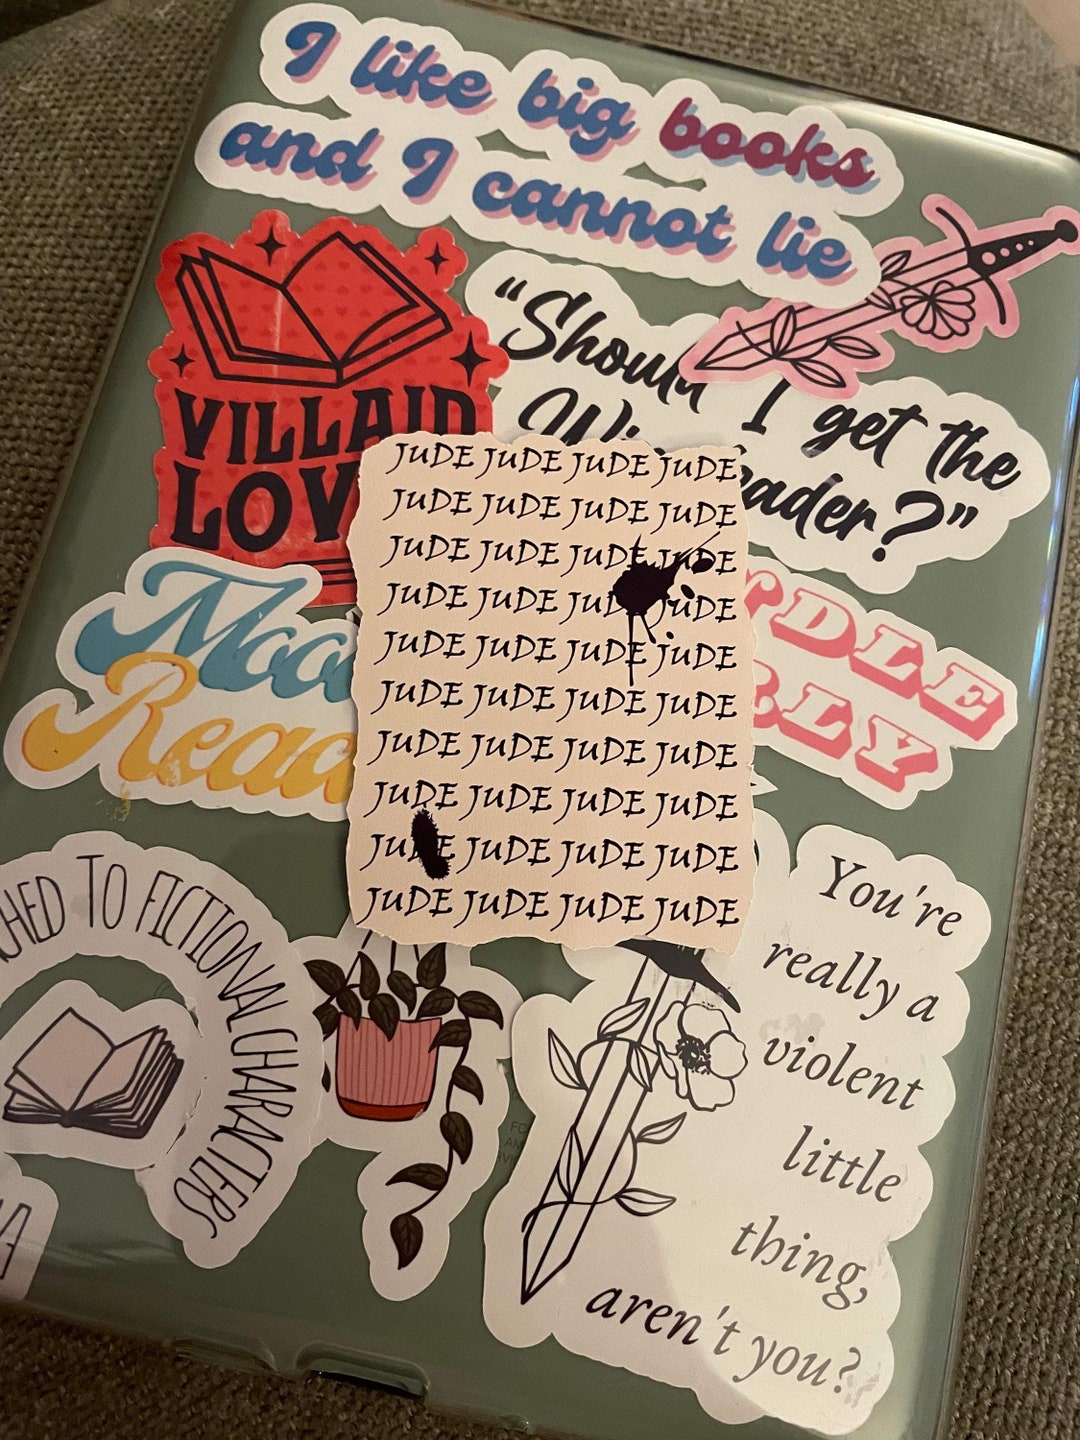 I like big books
and I cannot lie
VILLAIN
LOV
"Should I get the
ader?"
JUDE JUDE JUDE JUDE
JUDE JUDE JUDE JUDE
JUDE JUDE JUDE JUDE
JUDE JUDE JUDE JUDE
JUDE JUDE JUDE JUDE
JUDE JUDE JUDE JUDE
JUDE JUDE JUDE JUDE
JUDE JUDE JUDE JUDE
JUDE JUDE JUDE JUDE
JUDE JUDE JUDE JUDE
Moo
Read
DLE
LLY
CHED TO FICTIONAL CHARACTERS
You're
really a
violent
little
thing,
aren't you?